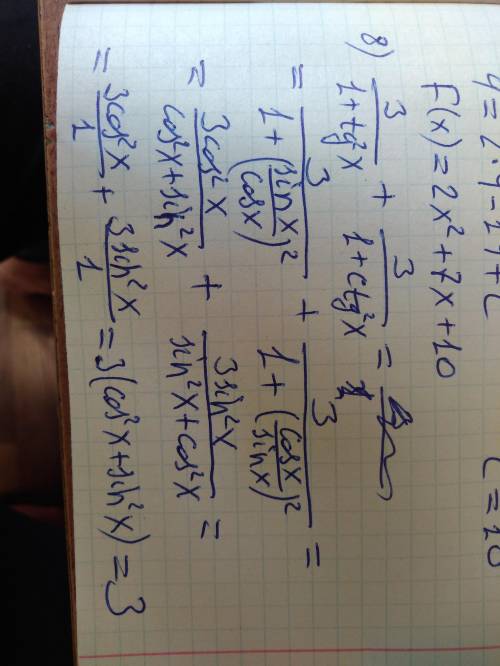 4 = 2·4 - 14 + C
C = 10
F(x) = 2x² + 7x + 10
8) 3/(1+tg²x) + 3/(1+ctg²x) =
= 3/(1+(sinx/cosx)²) + 3/(1+(cosx/sinx)²) =
= 3cos²x/(cos²x+sin²x) + 3sin²x/(sin²x+cos²x) =
= 3cos²x/1 + 3sin²x/1 = 3(cos²x+sin²x) = 3